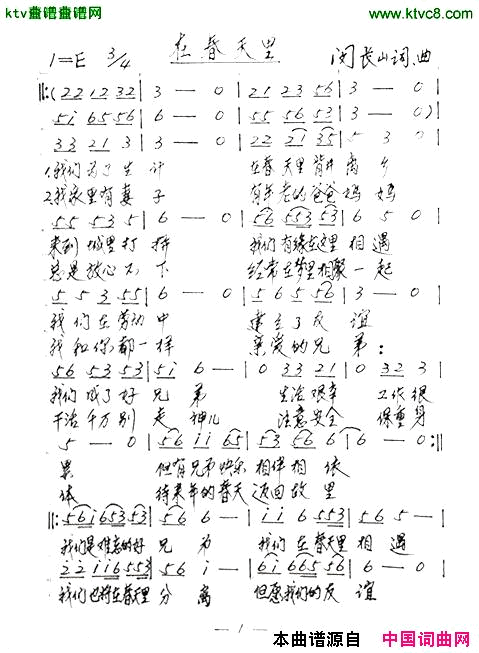 ktv查谱查谱网
www.ktvc8.com
在春天里
1=E 3/4
闵长山词.曲
‖:(22 12 32 | 3 — 0 | 21 23 56 | 3 — 0 |
5i 65 56 | 6 — 0 | 55 53 56 | 3 — 0)|
33 21 3 | 3 — 0 | 22 21 35 | 5 3 0 |
1.我们为了生计 在春天里背井离乡
2.我家里有妻子 有年老的爸爸妈妈
55 53 5 | 6 — 0 | 56 553 53 | 6 5 0 |
来到城里打拼 我们有缘在这里相遇
总是放心不下 经常在梦里相聚一起
5 5 3 55 | 6 — 0 | 5 6 5 56 | 3 — 0 |
我们在劳动中 建立了友谊
我和你都一样 亲爱的兄弟:
56 53 53 | 5i 6 — | 0 33 21 | 0 32 3 |
我们成了好兄弟 生活艰辛 工作很
干活千万别走神儿 注意安全 保重身
5 — 0 | 56 ii 65 | 53 56 6 | 6 — 0 :‖
累 但有兄弟快乐相伴相依
体 待来年的春天返回故里
‖: 56i 653 53 | 56 6 — | ii 6 553 | 56 5 — |
我们是难忘的好兄弟 我们在春天里相遇
22 ii6 553 | 56 i — | 6i 66 56 | 5 6 — |
我们也将在春天里分离 但愿我们的友谊
— 1 —
本曲谱源自 中国词曲网